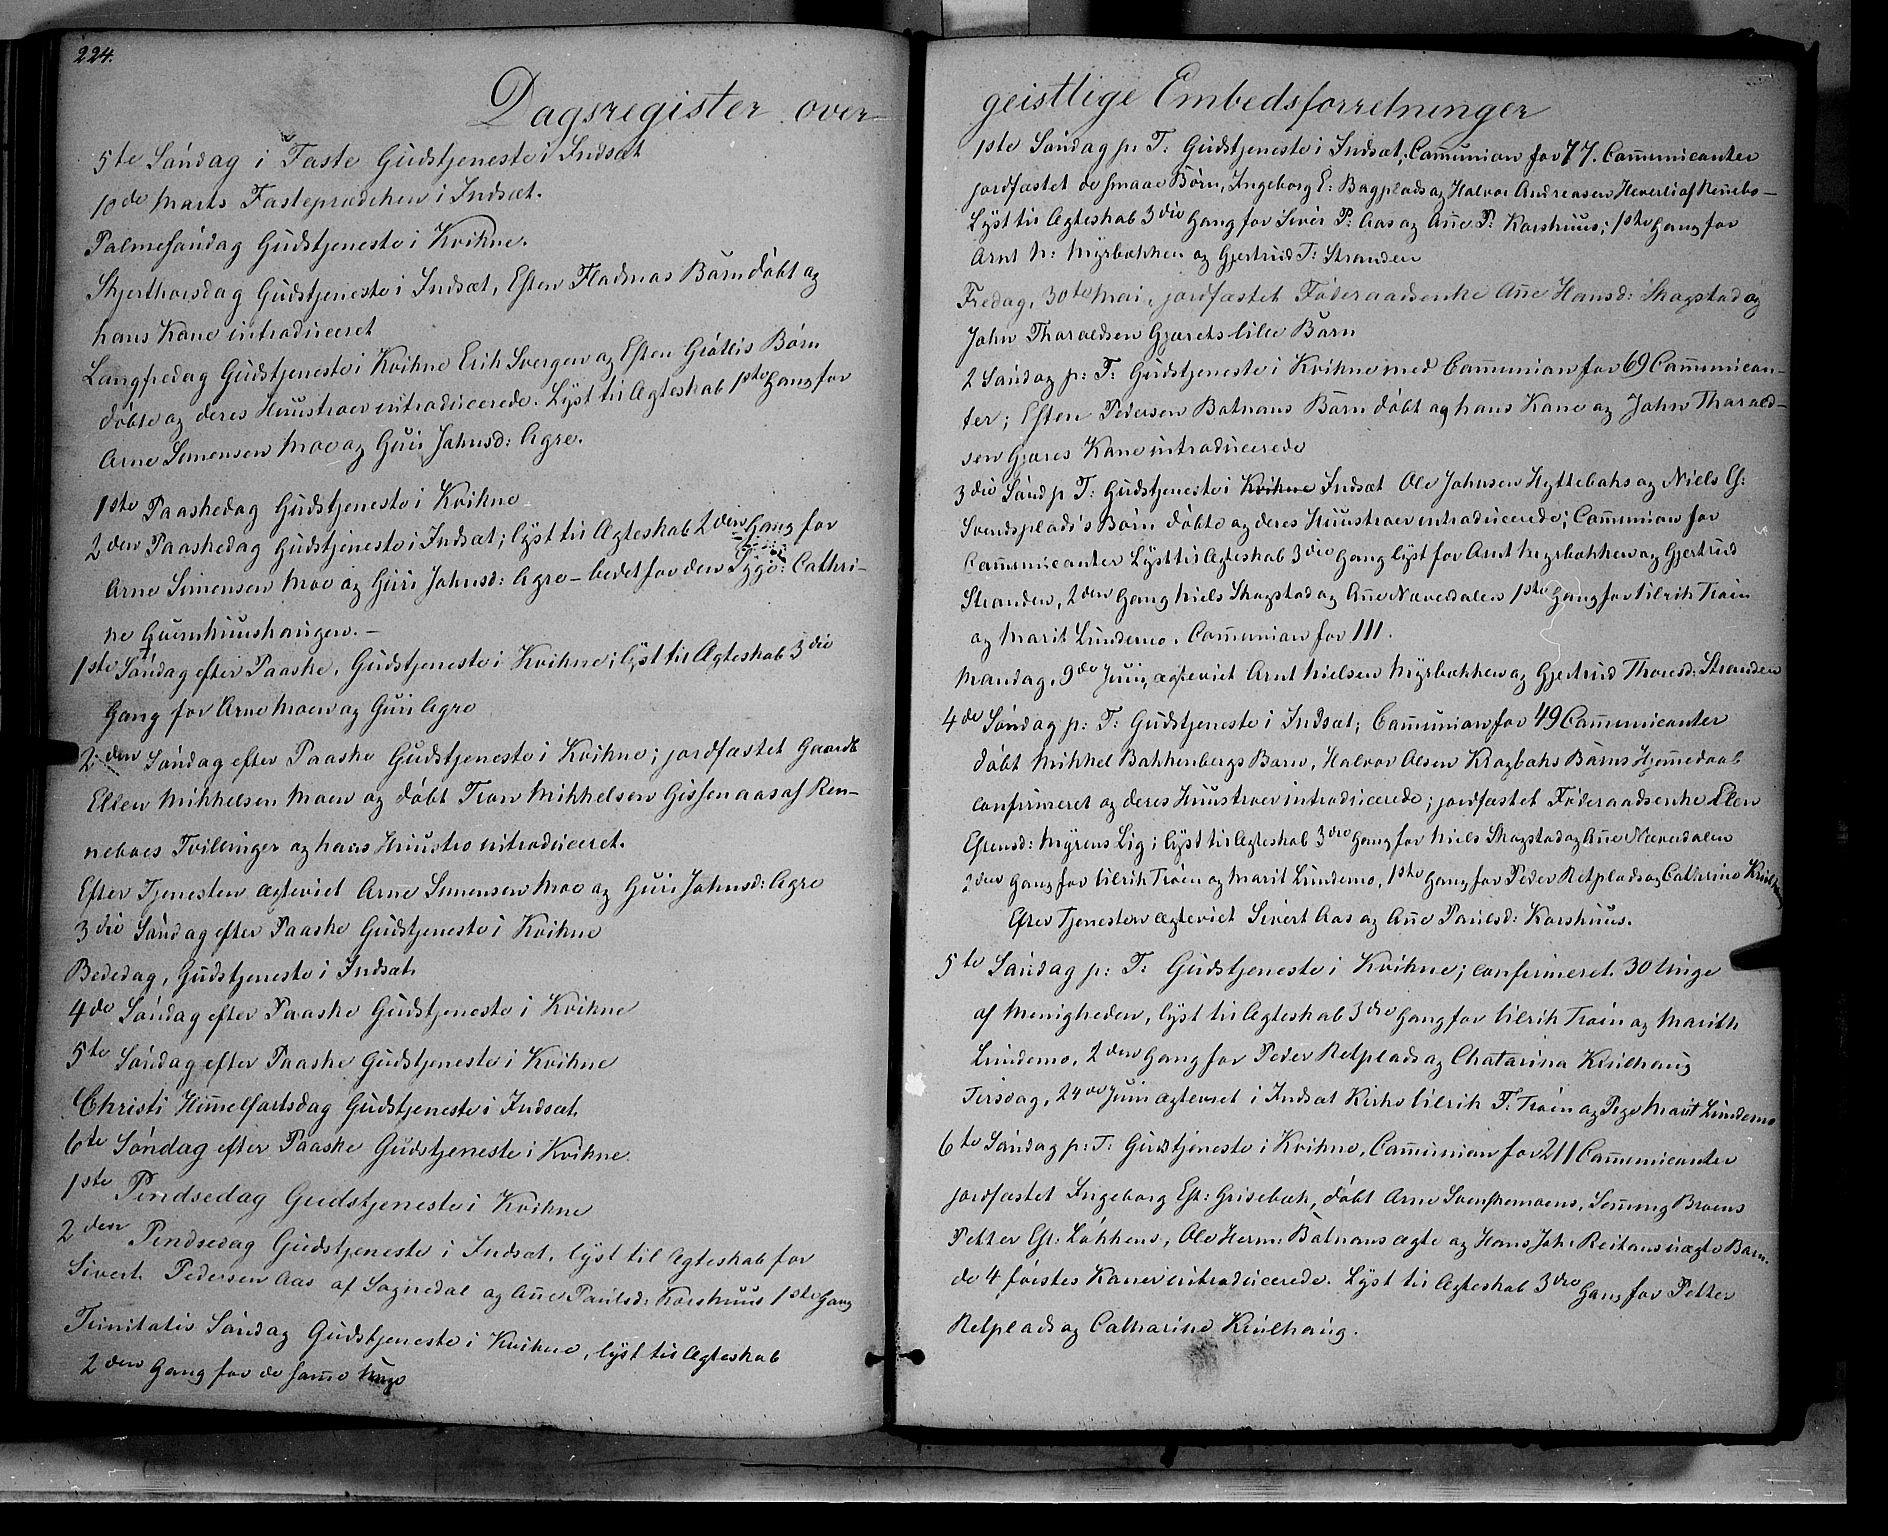 224.
Dagsregister over
5te Søndag i Faste Gudstjeneste i Indsæt
10de Marts Fasteprædiken i Indsæt.
Palmesøndag Gudstjeneste i Kvikne.
Skjerthorsdag Gudstjeneste i Indsæt, Esten Fladmos Barn døbt og
hans Kone introduceret
Langfredag Gudstjeneste i Kvikne Erik Svergen og Esten Børn
døbte og deres Huustroer introducerede. Lyst til Ægteskab 1ste Gang for
Arne Simensen Moe og Guri Johnsd: Agre.
1ste Paaskedag Gudstjeneste i Kvikne
2den Paaskedag Gudstjeneste i Indsæt; lyst til Ægteskab 2den Gang for
Arne Simensen Moe og Guri Johnsd: Agre – bedet for den Syge: Cathri-
ne
1ste Søndag efter Paaske, Gudstjeneste i Kvikne; lyst til Ægteskab 3die
Gang for Arne Moen og Guri Agre
2den Søndag efter Paaske Gudstjeneste i Kvikne; jordfæstet Gaardb
Ellen Mikkelsen Moen og døbt Tron Mikkelsen Gissenaas af Ren-
neboes Tvillinger og hans Huustro introduceret.
Efter Tjenesten ægteviet Arne Simensen Moe og Guri Johnsd: Agre
3die Søndag efter Paaske Gudstjeneste i Kvikne
Bededag, Gudstjeneste i Indsæt.
4de Søndag efter Paaske Gudstjeneste i Kvikne
5te Søndag efter Paaske Gudstjeneste i Kvikne
Christi Himmelfartsdag Gudstjeneste i Indsæt.
6te Søndag efter Paaske Gudstjeneste i Kvikne.
1ste Pindsedag Gudstjeneste i Kvikne
2den Pindsedag Gudstjeneste i Indsæt. lyst til Ægteskab for
Sivert Pedersen Aas af Sognedal og Ane Paulsd: Korshuus 1ste Gang
Trinitatis Søndag Gudstjeneste i Kvikne, lyst til Ægteskab
2den Gang for de samme Unge
geistlige Embedsforretninger
1ste Søndag p: T: Gudstjeneste i Indsæt, Communion for 77. Communicanter
jordfæstet de smaae Børn, Ingeborg E: Bagplads og Halvor Andreasen Heverli af Rennebo –
Lyst til Ægteskab 3die Gang for Siver P: Aas og Ane P: Korshuus; 1ste Gang for
Arnt N: Myrbækken og Gjertrud T: Stranden
Fredag, 30te Mai, jordfæstet Føderaadsenke Ane Hansd: Skogstad og
John Tharaldsen Gjærets lille Barn
2 Søndag p: T: Gudstjeneste i Kvikne med Communion for 69 Communican-
ter; Esten Pedersen Batnans Barn døbt og hans Kone og John Tharald-
sen Gjæres Kone introducerede
3die Sønd p T: Gudstjeneste i Kvikne Indsæt Ole Johnsen Hyttebaks og Niels G:
Svendsplads's Børn døbte og deres Huustroer introducerede; Communion for
Communicanter Lyst til Ægteskab 3die Gang lyst for Arnt Myrbækken og Gjertrud
Stranden, 2den Gang Niels Skogstad og Ane Næverdalen 1ste Gang for Ulrik Trøen
og Marit Lindemo. Communion for 111.
Mandag, 9de Juni, ægteviet Arnt Nielsen Myrbækken og Gjertrud Thoresd: Stranden
4de Søndag p: T: Gudstjeneste i Indsæt; Communion for 49 Communicanter
døbt Mikkel Bakkenbergs Barn, Halvor Olsen Kragbaks Barns Hjemmedaab
confirmeret og deres Huustroer introducerede; jordfæstet Føderaadsenke Elen
Estensd: Myrens Lig; lyst til Ægteskab 3die Gang for Niels Skogstad og Ane Næverdalen
2den Gang for Ulrik Trøen og Marit Lindemo, 1ste Gang for Peder Retplads og Cathrine
Efter Tjenesten ægteviet Sivert Aas og Ane Paulsd: Korshuus.
5te Søndag p: T: Gudstjeneste i Kvikne; confirmeret 30 Unge
af Menigheden, lyst til Ægteskab 3die Gang for Ulrik Trøen og Marith
Lindemo, 2den Gang for Peder Retplads og Chatarina Kiulhaug
Tirsdag, 24de Juni ægteviet i Indsæt Kirke Ulrik F: Trøen og Pige Marit Lindemo
6te Søndag p: T: Gudstjeneste i Kvikne, Communion for 211 Communicanter
jordfæstet Ingeborg Est: Grisebæk, døbt Arne Svenskemoens, Broens
Petter Est: Løkkens, Ole Herm: Batnans ægte og Hans Joh: Reitans uægte Barn.
de 4 føistes Koner introducerede. Lyst til Ægteskab 3die Gang for Petter
Retplads og Catharine Kiulhaug.